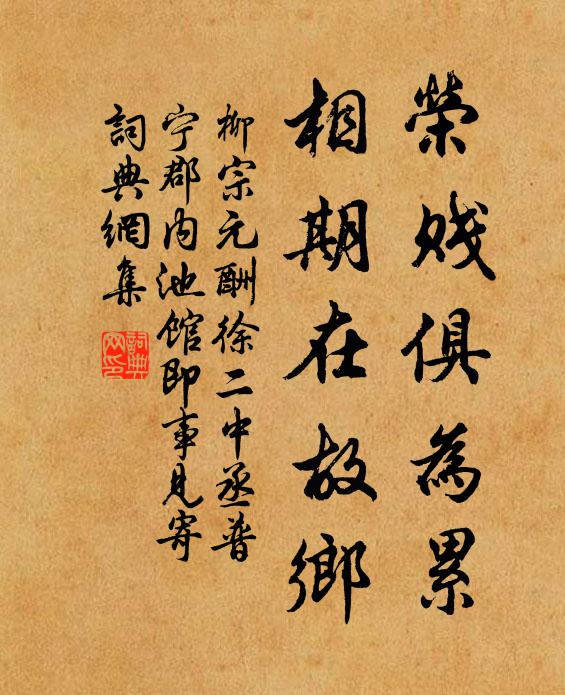 榮賤俱為累
相期在故鄉
柳宗元酬徐二中丞普
宁郡内池館即事見寄
詞典網集
詞典网印